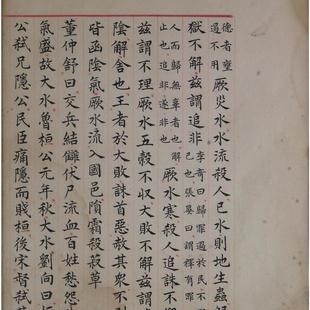 德者壅
遏不用
厥災水水流殺人已水則地生蟲
獄不解茲謂追非
李奇曰歸罪過於民不
己也張晏曰謂釋有罪
人而歸無辜者也解
止也追非遂非也
厥水寒殺人追誅不
茲謂不理厥水五穀不收大敗不解茲謂
陰解舍也王者於大敗誅首惡赦其衆不則
皆函陰氣厥水流入國邑隕霜殺菽草
董仲舒曰交兵結讎伏尸流血百姓愁怨
氣盛故大水魯桓公元年秋大水劉向曰
公弒兄隱公民臣痛隱而賤桓後宋督弒